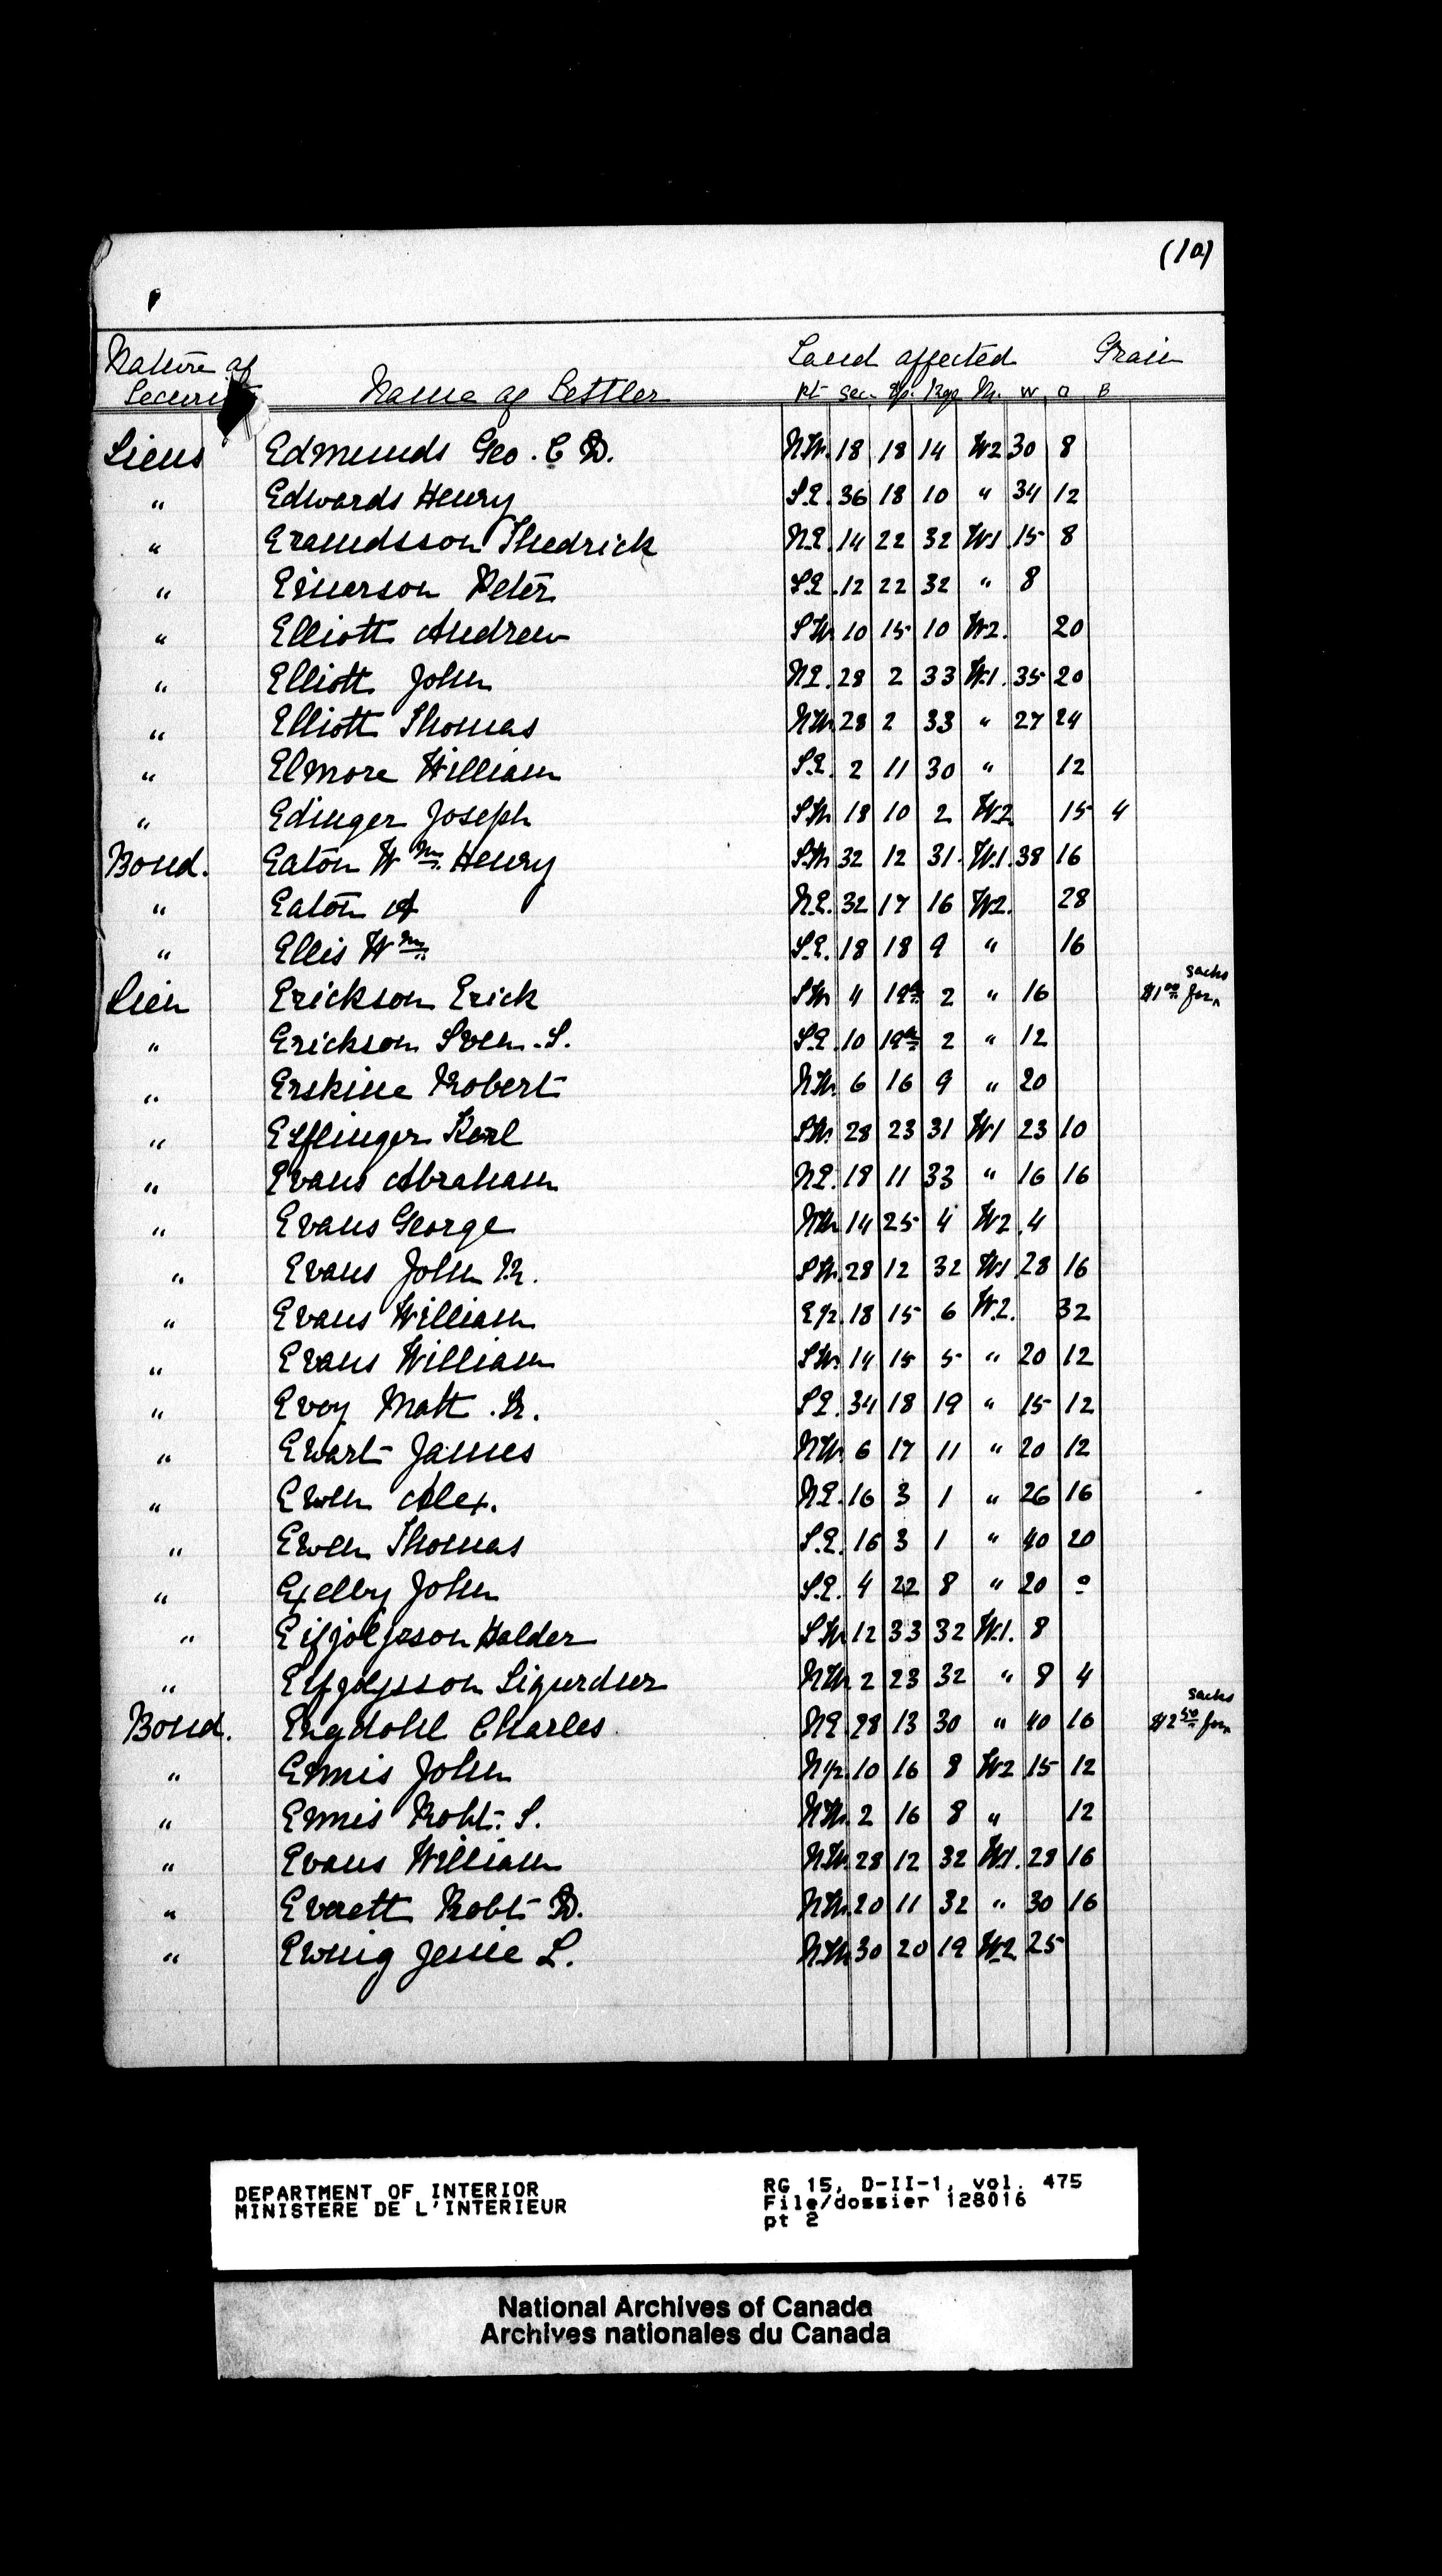 (10)
Nature of Land affected Grain
Security Name of Settler Pt Sec. Tp. Rge M. W O B
Liens Edmunds Geo. C D. N.W. 18 18 14 W2 30 8
" Edwards Henry S.E. 36 18 10 " 34 12
" Thedrick N.E. 14 22 32 W1 15 8
" Einerson Peter S.E. 12 22 32 " 8
" Elliott Andrew S.W 10 15 10 W2. 20
" Elliott John N.E. 28 2 33 W.1. 35 20
" Elliott Thomas N.W. 28 2 33 " 27 24
" Elmore William S.E. 2 11 30 " 12
" Edinger Joseph S.W 18 10 2 W2 15 4
Bond. Eaton Wm. Henry S.W 32 12 31. W.1. 38 16
" Eaton A N.E. 32 17 16 W2. 28
" Ellis Wm. S.E. 18 18 9 " 16
Lien Erickson Erick S.W 4 19a 2 " 16 $1.00 for sacks
" Erickson Sven. S. S.E. 10 19a 2 " 12
" Erskine Robert N.W. 6 16 9 " 20
" Karl S.W. 28 23 31 W1 23 10
" Evans Abraham N.E. 18 11 33 " 16 16
" Evans George N.W. 14 25 4 W2. 4
" Evans John R. S.W. 28 12 32 W1 28 16
" Evans William E½. 18 15 6 W2. 32
" Evans William S.W. 14 15 5 " 20 12
" Evoy Matt. Sr. S.E. 34 18 19 " 15 12
" Ewart James N.W. 6 17 11 " 20 12
" Ewen Alex. N.E. 16 3 1 " 26 16
" Ewen Thomas S.E. 16 3 1 " 40 20
" Exelby John S.E. 4 22 8 " 20 0
" Halder S.W 12 33 32 W.1. 8
" Sigurdur N.W. 2 23 32 " 8 4
Bond. Engdohl Charles N.E 28 13 30 " 40 16 $2.50 for sacks
" Ennis John N½. 10 16 8 W2 15 12
" Ennis Robt. S. N.W. 2 16 8 " 12
" Evans William N.W. 28 12 32 W.1. 28 16
" Everett Robt D. N.W. 20 11 32 " 30 16
" Ewing Jessie L. N.W. 30 20 19 W2 25
DEPARTMENT OF INTERIOR RG 15, D-II-1, vol. 475
MINISTERE DE L'INTERIEUR File/dossier 128016
pt 2
National Archives of Canada
Archives nationales du Canada